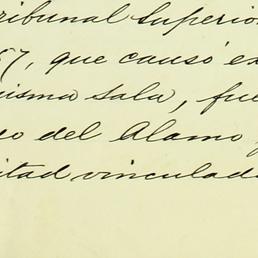 ribunal Superio
67, que causó e
misma Sala, fue
o del Alamo y
itad vinculad